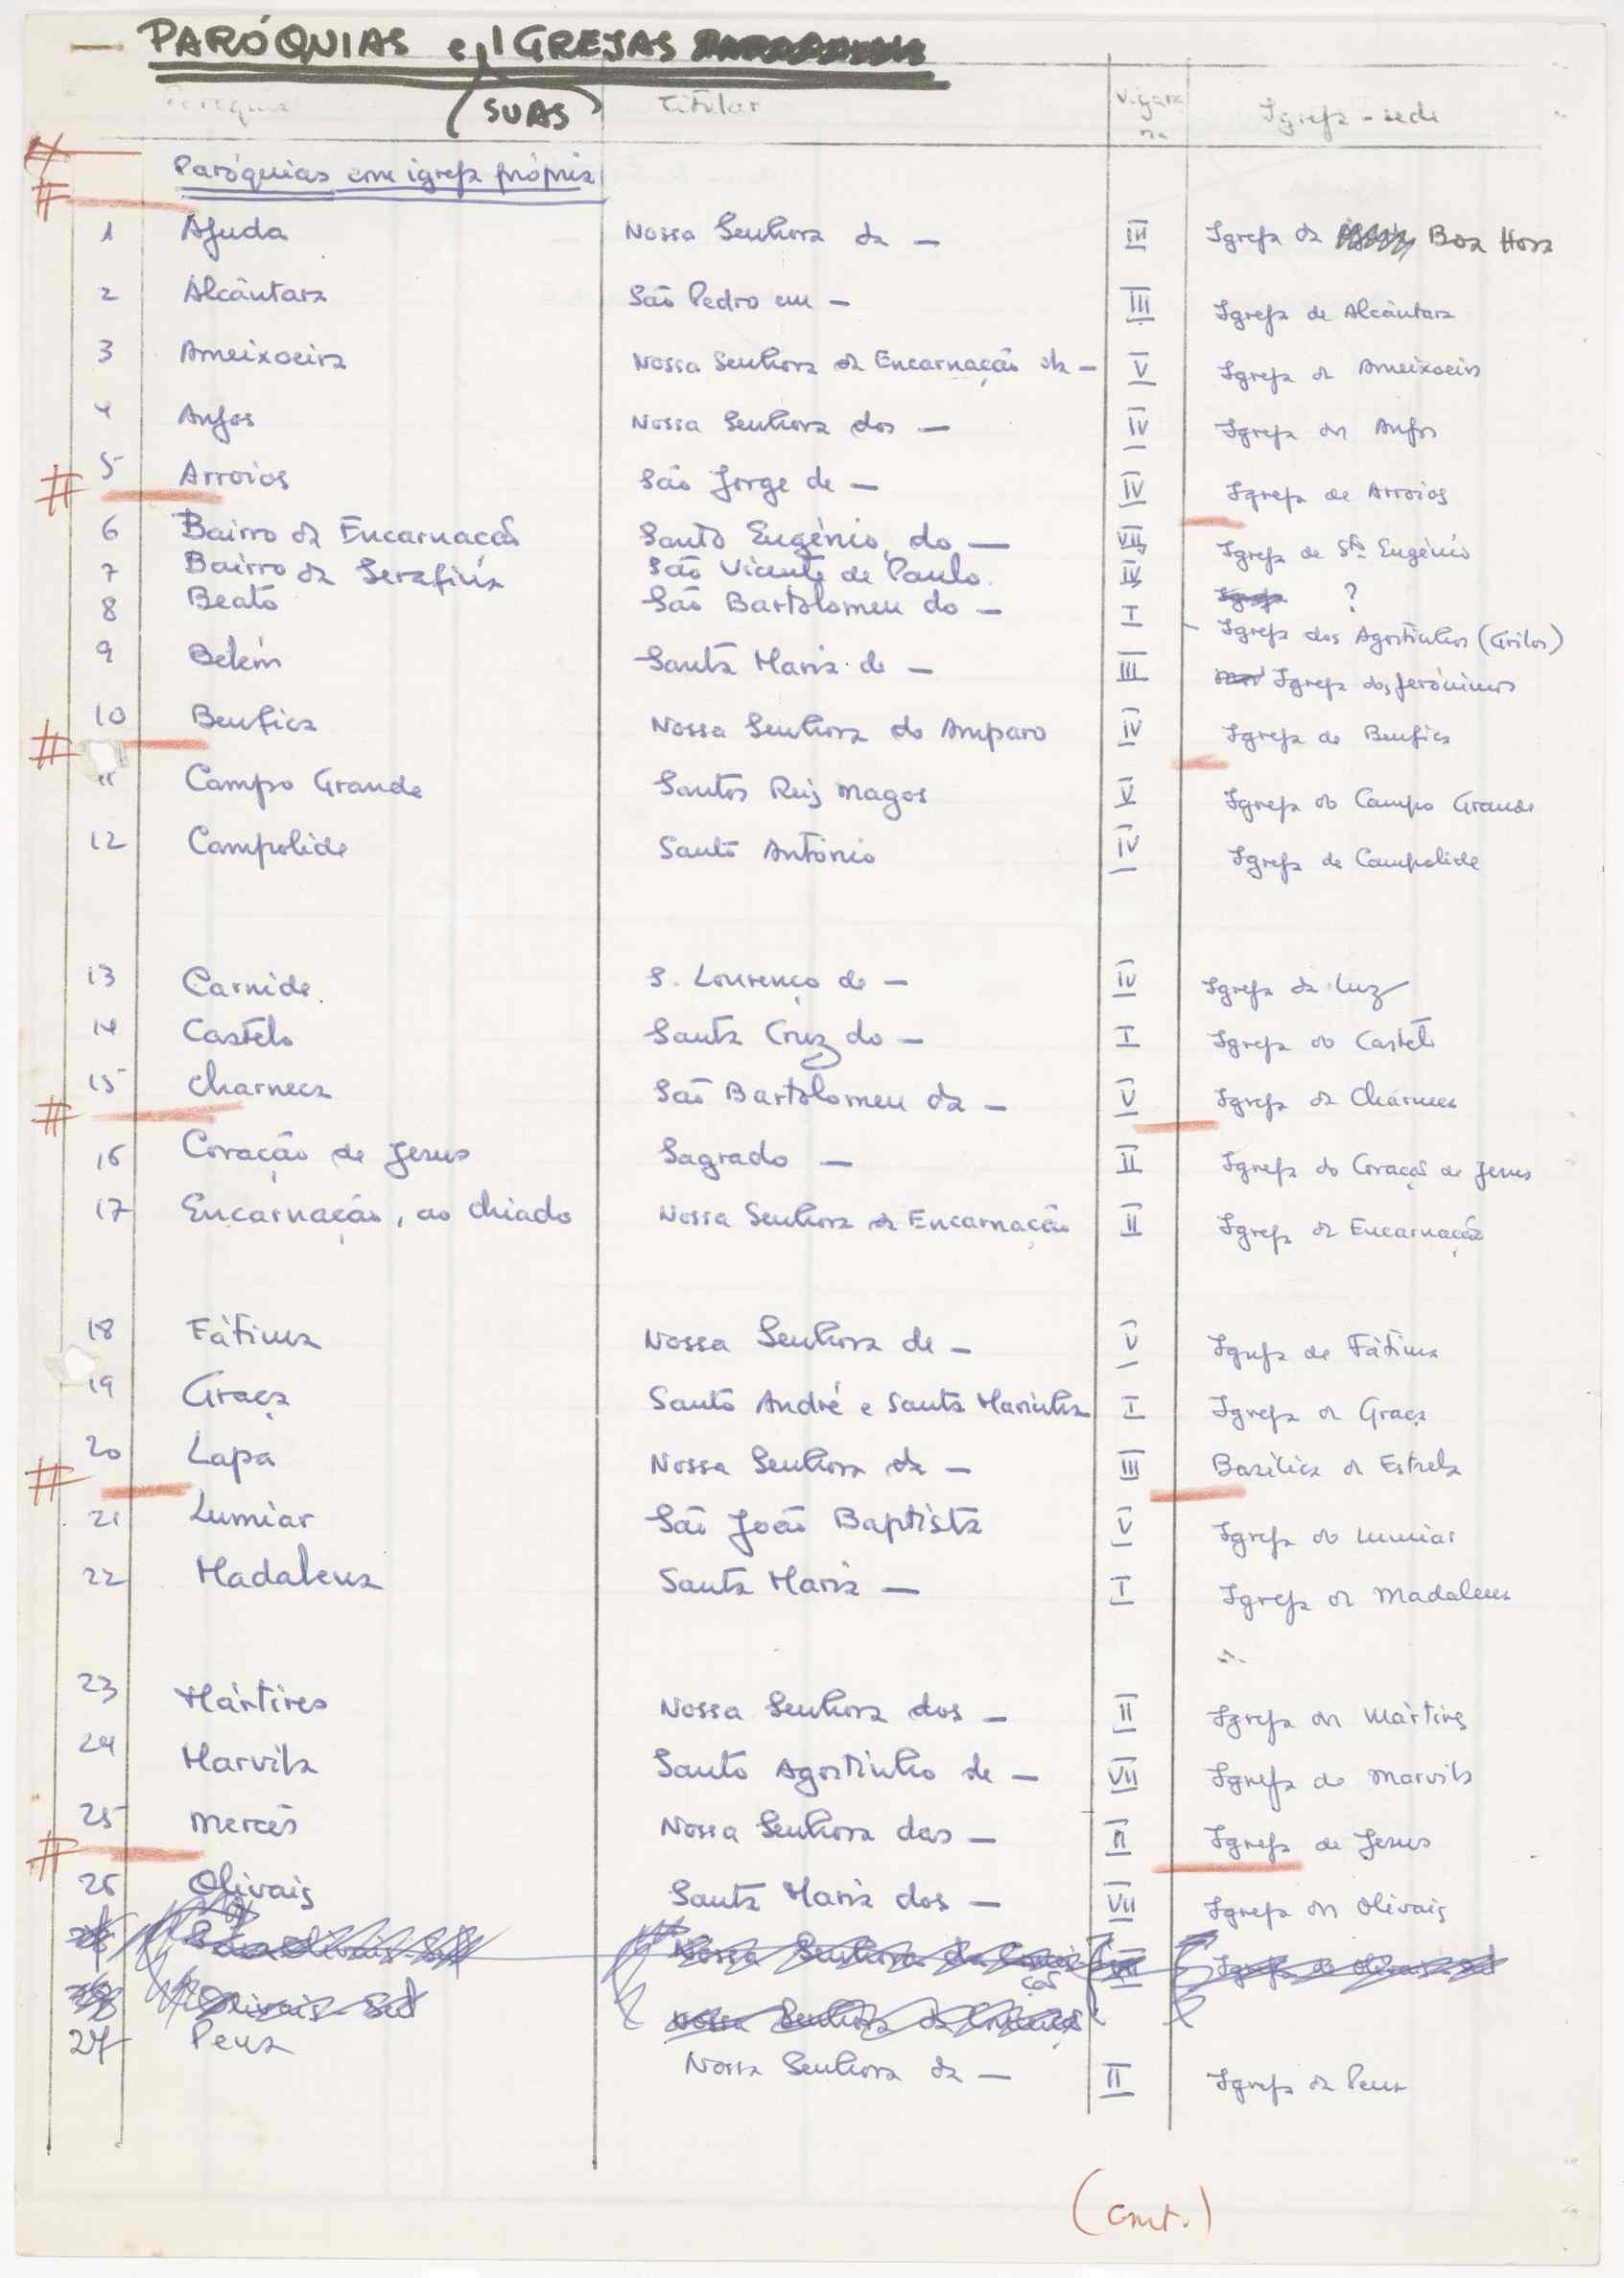 — PARÓQUIAS e IGREJAS
(SUAS)
Titular
Vigararia
Igreja-sede
Paróquias com igreja própria
1 Ajuda Nossa Senhora da — III Igreja da Boa Hora
2 Alcântara São Pedro em — III Igreja de Alcântara
3 Ameixoeira Nossa Senhora da Encarnação da — V Igreja da Ameixoeira
4 Anjos Nossa Senhora dos — IV Igreja dos Anjos
# 5 Arroios São Jorge de — IV Igreja de Arroios
6 Bairro da Encarnação Santo Eugénio, do — VII Igreja de Stº Eugénio
7 Bairro da Serafina São Vicente de Paulo IV ?
8 Beato São Bartolomeu do — I Igreja dos Agostinhos (Grilos)
9 Belém Santa Maria de — III Igreja dos Jerónimos
# 10 Benfica Nossa Senhora do Amparo IV Igreja de Benfica
11 Campo Grande Santos Reis Magos V Igreja do Campo Grande
12 Campolide Santo António IV Igreja de Campolide
13 Carnide S. Lourenço de — IV Igreja da Luz
14 Castelo Santa Cruz do — I Igreja do Castelo
# 15 Charneca São Bartolomeu da — V Igreja da Charneca
16 Coração de Jesus Sagrado — II Igreja do Coração de Jesus
17 Encarnação, ao Chiado Nossa Senhora da Encarnação II Igreja da Encarnação
18 Fátima Nossa Senhora de — V Igreja de Fátima
19 Graça Santo André e Santa Marinha I Igreja da Graça
# 20 Lapa Nossa Senhora da — III Basílica da Estrela
21 Lumiar São João Baptista V Igreja do Lumiar
22 Madalena Santa Maria — I Igreja da Madalena
23 Mártires Nossa Senhora dos — II Igreja dos Mártires
24 Marvila Santo Agostinho de — VII Igreja de Marvila
# 25 Mercês Nossa Senhora das — II Igreja de Jesus
26 Olivais Santa Maria dos — VII Igreja dos Olivais
27 Pena Nossa Senhora da — II Igreja da Pena
(cont.)